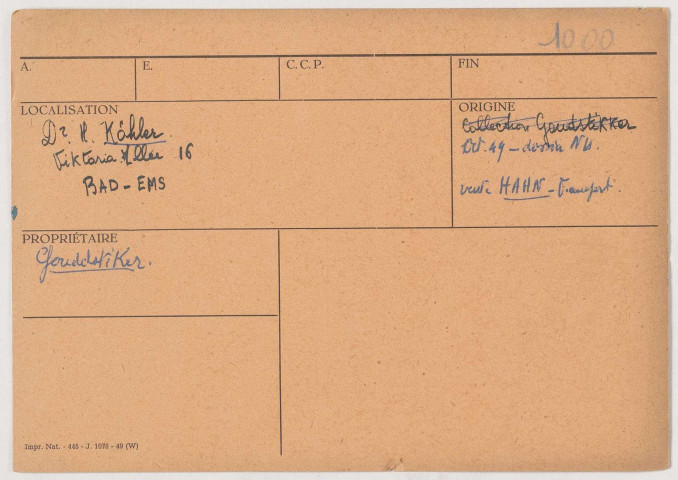 1000
A.
E.
C. C. P.
FIN
LOCALISATION
Dr. H. Köhler.
Viktoria Allee 16
BAD-EMS
ORIGINE
Collection Goudstikker
Oct. 49 - dossier
vente HAHN - Transport.
PROPRIÉTAIRE
Gouddstiker.
Impr. Nat. - 446 - J. 1076 - 49 (W)